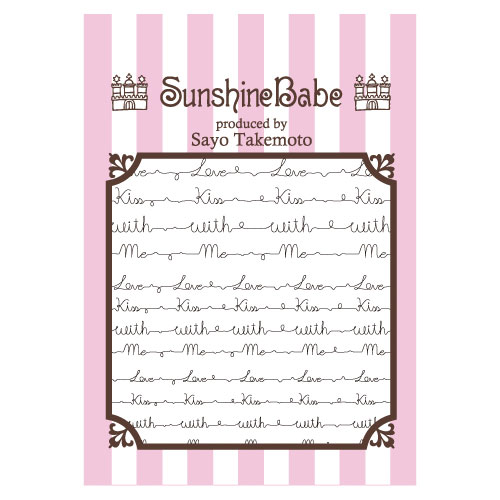 SunshineBabe
produced by
Sayo Takemoto
Love Love Love Love
Kiss Kiss Kiss Kiss
with with with with
Me Me Me Me
Love Love Love Love Love
Kiss Kiss Kiss Kiss Kiss
with with with with with
Me Me Me Me Me
Love Love Love Love Love Love
Kiss Kiss Kiss Kiss Kiss Kiss
with with with with with with